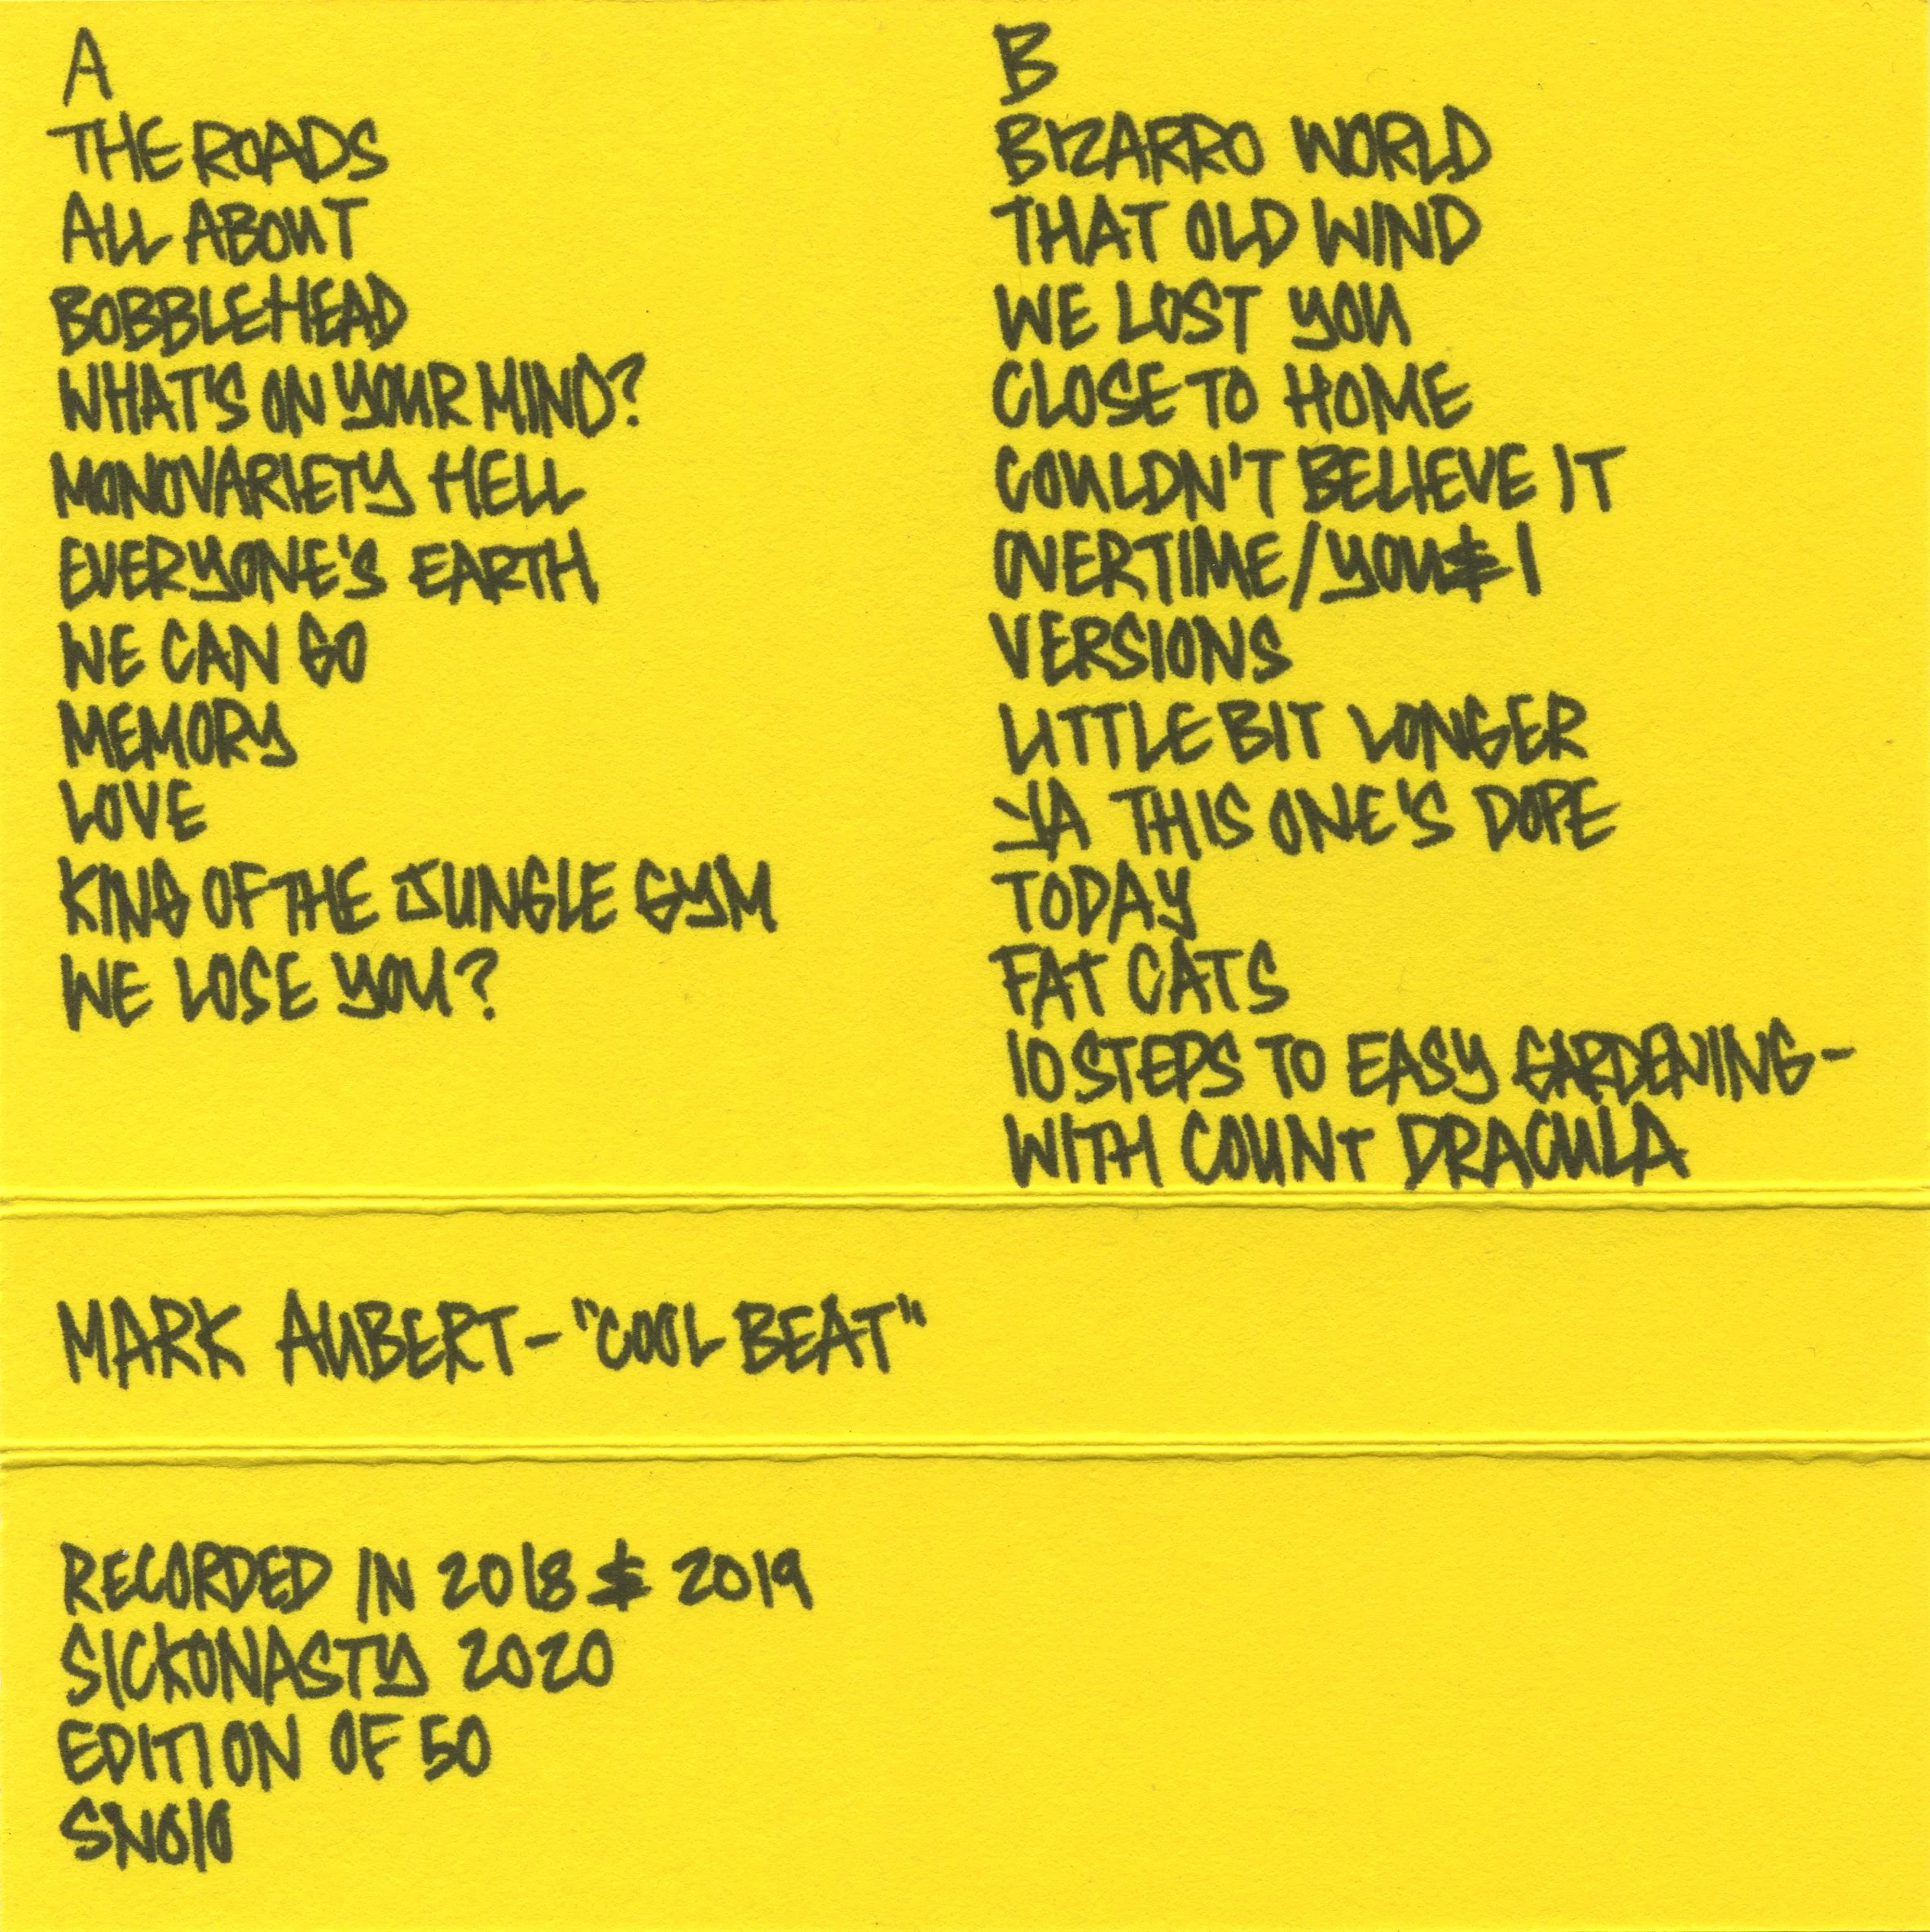 A
THE ROADS
ALL ABOUT
BOBBLEHEAD
WHAT'S ON YOUR MIND?
MONOVARIETY HELL
EVERYONE'S EARTH
WE CAN GO
MEMORY
LOVE
KING OF THE JUNGLE GYM
WE LOSE YOU?
B
BIZARRO WORLD
THAT OLD WIND
WE LOST YOU
CLOSE TO HOME
COULDN'T BELIEVE IT
OVERTIME/YOU & I
VERSIONS
LITTLE BIT LONGER
YA THIS ONE'S DOPE
TODAY
FAT CATS
10 STEPS TO EASY GARDENING-
WITH COUNT DRACULA
MARK AUBERT - "COOL BEAT"
RECORDED IN 2018 & 2019
SICKONASTY 2020
EDITION OF 50
SN010